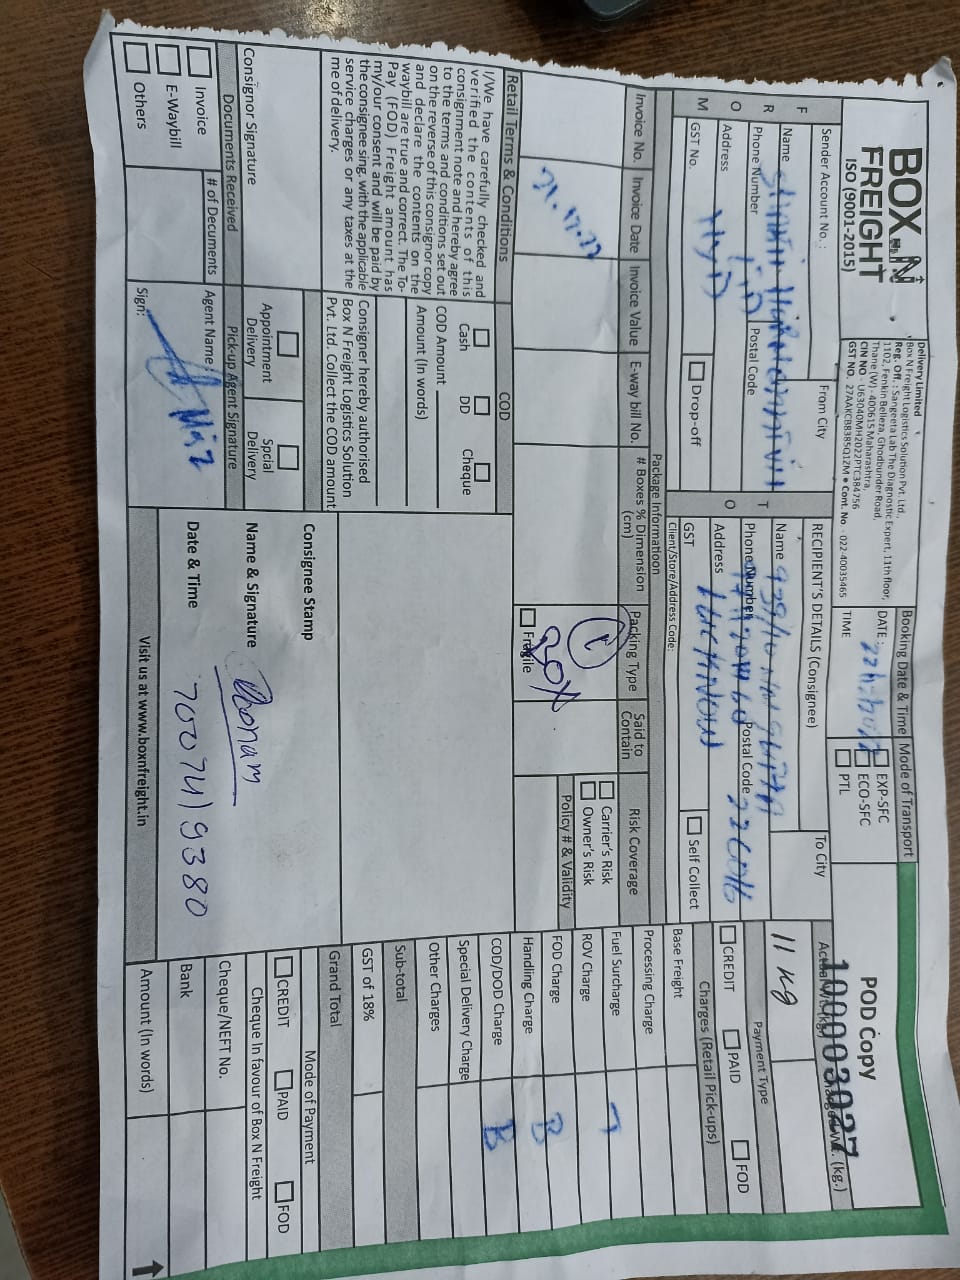 BOX N FREIGHT
ISO (9001-2015)
Delivery Limited
Box N Freight Logistics Solution Pvt. Ltd.,
Reg. Off. : Sangeeta Lab The Diagnostic Expert, 11th floor,
1102, Fenkin Belleza, Ghodbunder Road,
Thane (W) - 400615 Maharashtra,
CIN NO - U63040MH2022PTC384756
GST NO. 27AAKCB8385Q1ZM ● Cont. No. - 022-40035465
Booking Date & Time
DATE :
TIME
Mode of Transport
EXP-SFC
ECO-SFC
PTL
POD Copy
100003027
FROM
Sender Account No. :
From City
Name
Phone Number
Postal Code
Address HYD
GST No.
Drop-off
TO
RECIPIENT'S DETAILS (Consignee)
To City
Name 939/10 NN GUPTA
Phone Number
Postal Code 226016
Address LUCKNOW
GST
Self Collect
Client/Store/Address Code:
Actual Wt. (kg.)
Charged Wt. (kg.)
11 kg
Payment Type
CREDIT
PAID
FOD
Charges (Retail Pick-ups)
Base Freight
Processing Charge
Fuel Surcharge T
ROV Charge
FOD Charge B
Handling Charge
COD/DOD Charge B
Special Delivery Charge
Other Charges
Sub-total
GST of 18%
Grand Total
Mode of Payment
CREDIT
PAID
FOD
Cheque In favour of Box N Freight
Cheque/NEFT No.
Bank
Amount (In words)
Package Informatioon
Invoice No.
Invoice Date
Invoice Value
E-way bill No.
# Boxes % Dimension (cm)
Packing Type
Said to Contain
Risk Coverage
BOX
Fragile
Carrier's Risk
Owner's Risk
Policy # & Validity
Retail Terms & Conditions
I/We have carefully checked and
verified the contents of this
consignment note and hereby agree
to the terms and conditions set out
on the reverse of this consignor copy
and declare the contents on the
waybill are true and correct. The To-
Pay (FOD) Freight amount has
my/our consent and will be paid by
the consignee sing. with the applicable
service charges or any taxes at the
me of delivery.
Consignor Signature
COD
Cash
DD
Cheque
COD Amount
Amount (In words)
Consigner hereby authorised
Box N Freight Logistics Solution
Pvt. Ltd. Collect the COD amount.
Appointment Delivery
Spcial Delivery
Documents Received
Invoice
E-Waybill
Others
# of Documents
Pick-up Agent Signature
Agent Name :
Sign:
Consignee Stamp
Name & Signature Poonam
Date & Time 7007419380
Visit us at www.boxnfreight.in